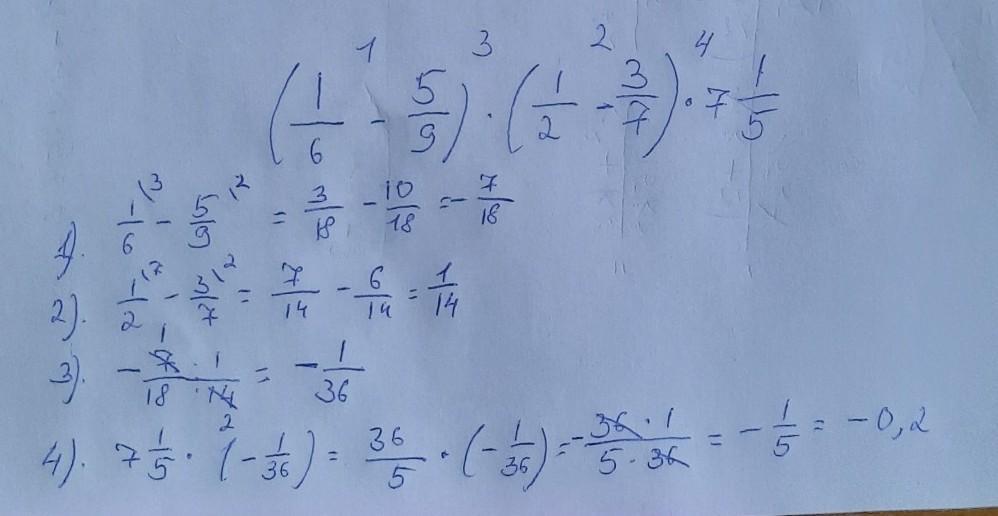 1 3 2 4
(1/6 - 5/9) · (1/2 - 3/7) · 7 1/5
1). 1/6 \3 - 5/9 \2 = 3/18 - 10/18 = - 7/18
2). 1/2 \7 - 3/7 \2 = 7/14 - 6/14 = 1/14
3). - 7 1 · 1 / 18 · 14 2 = - 1/36
4). 7 1/5 · (- 1/36) = 36/5 · (- 1/36) = - 36 · 1 / 5 · 36 = - 1/5 = - 0,2